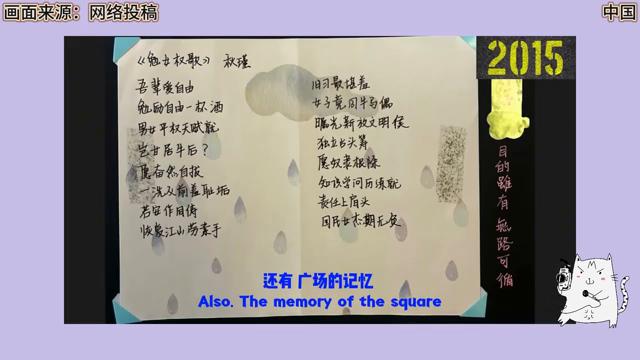 画面来源：网络投稿
中国
2015
《勉女权歌》 秋瑾
吾辈爱自由
勉励自由一杯酒
男女平权天赋就
岂甘居牛后？
愿奋然自拔
一洗从前羞耻垢
若安作同俦
恢复江山劳素手
旧习最堪羞
女子竟同牛马偶
曙光新放文明候
独立占头筹
愿奴隶根除
知识学问历练就
责任上肩头
国民女杰期无负
目的雖有 無路可循
还有 广场的记忆
Also. The memory of the square